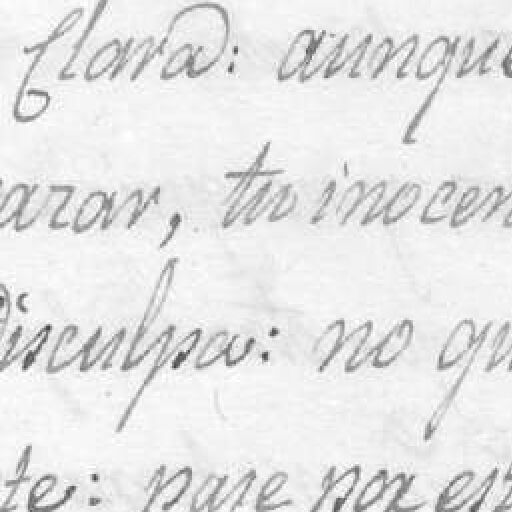 Clara: aunque
arar, tu inocen
disculpa: no qu
te: pase por est